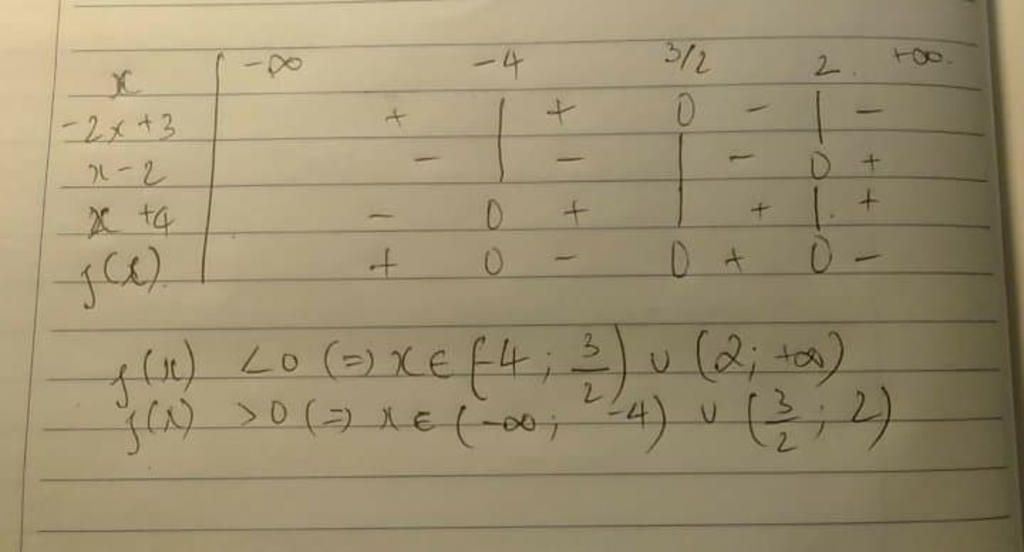 x | -∞ -4 3/2 2 +∞
-2x+3 | + | + 0 - | -
x-2 | - | - | - 0 +
x+4 | - 0 + | + | +
f(x) | + 0 - 0 + 0 -
f(x) <0 (=) x ∈ (-4; 3/2) ∪ (2; +∞)
f(x) >0 (=) x ∈ (-∞; -4) ∪ (3/2; 2)